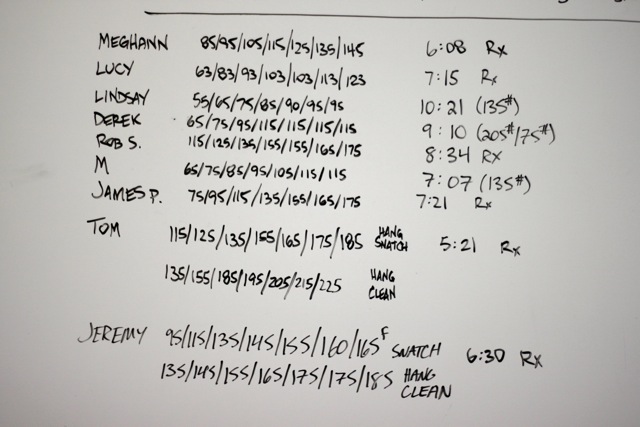 MEGHANN 85/95/105/115/125/135/145 6:08 Rx
LUCY 63/83/93/103/103/113/123 7:15 Rx
LINDSAY 55/65/75/85/90/95/95 10:21 (135#)
DEREK 65/75/95/115/115/115/115 9:10 (205#/75#)
ROB S. 115/125/135/155/155/165/175 8:34 RX
M 65/75/85/95/105/115/115 7:07 (135#)
JAMES P. 75/95/115/135/155/165/175 7:21 Rx
TOM 115/125/135/155/165/175/185 HANG SNATCH 5:21 Rx
135/155/185/195/205/215/225 HANG CLEAN
JEREMY 95/115/135/145/155/160/165F SNATCH 6:30 Rx
135/145/155/165/175/175/185 HANG CLEAN